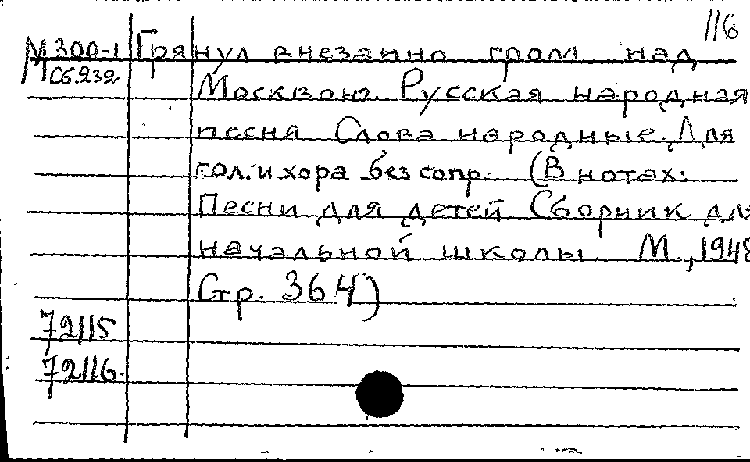 116
М300-1 Грянул внезапно гром над
Сб.232 Москвою. Русская народная
песня Слова народные. Для
гол. и хора без сопр. (В нотах:
Песни для детей Сборник для
начальной школы М., 1948
Стр. 364)
72115
72116.